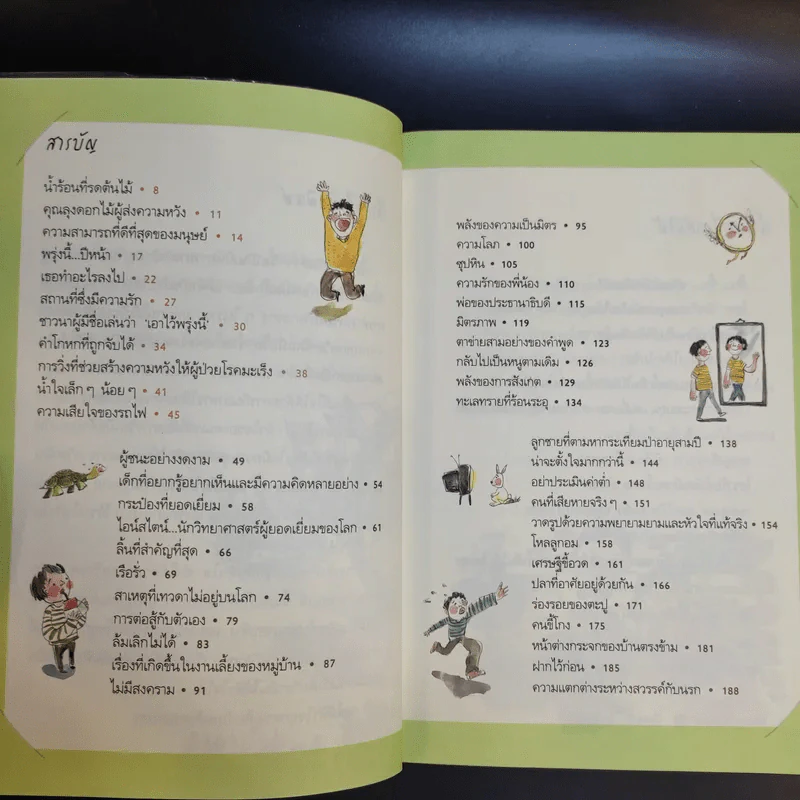 สารบัญ
น้ำร้อนที่รดต้นไม้ • 8
คุณลุงดอกไม้ผู้ส่งความหวัง • 11
ความสามารถที่ดีที่สุดของมนุษย์ • 14
พรุ่งนี้...ปีหน้า • 17
เธอทำอะไรลงไป • 22
สถานที่ซึ่งมีความรัก • 27
ชาวนาผู้มีชื่อเล่นว่า 'เอาไว้พรุ่งนี้' • 30
คำโกหกที่ถูกจับได้ • 34
การวิ่งที่ช่วยสร้างความหวังให้ผู้ป่วยโรคมะเร็ง • 38
น้ำใจเล็ก ๆ น้อย ๆ • 41
ความเสียใจของรถไฟ • 45
ผู้ชนะอย่างงดงาม • 49
เด็กที่อยากรู้อยากเห็นและมีความคิดหลายอย่าง • 54
กระป๋องที่ยอดเยี่ยม • 58
ไอน์สไตน์...นักวิทยาศาสตร์ผู้ยอดเยี่ยมของโลก • 61
ลิ้นที่สำคัญที่สุด • 66
เรือรั่ว • 69
สาเหตุที่เทวดาไม่อยู่บนโลก • 74
การต่อสู้กับตัวเอง • 79
ล้มเลิกไม่ได้ • 83
เรื่องที่เกิดขึ้นในงานเลี้ยงของหมู่บ้าน • 87
ไม่มีสงคราม • 91
พลังของความเป็นมิตร • 95
ความโลภ • 100
ซุปหิน • 105
ความรักของพี่น้อง • 110
พ่อของประธานาธิบดี • 115
มิตรภาพ • 119
ตาข่ายสามอย่างของคำพูด • 123
กลับไปเป็นหนูตามเดิม • 126
พลังของการสังเกต • 129
ทะเลทรายที่ร้อนระอุ • 134
ลูกชายที่ตามหากระเทียมป่าอายุสามปี • 138
น่าจะตั้งใจมากกว่านี้ • 144
อย่าประเมินค่าต่ำ • 148
คนที่เสียหายจริง ๆ • 151
วาดรูปด้วยความพยายามยามและหัวใจที่แท้จริง • 154
โหลลูกอม • 158
เศรษฐีขี้อวด • 161
ปลาที่อาศัยอยู่ด้วยกัน • 166
ร่องรอยของตะปู • 171
คนขี้โกง • 175
หน้าต่างกระจกของบ้านตรงข้าม • 181
ฝากไว้ก่อน • 185
ความแตกต่างระหว่างสวรรค์กับนรก • 188